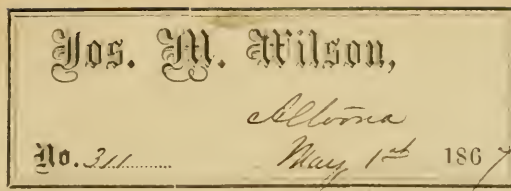 Jos. M. Wilson,
Altoona
No. 311 May 1st 1867